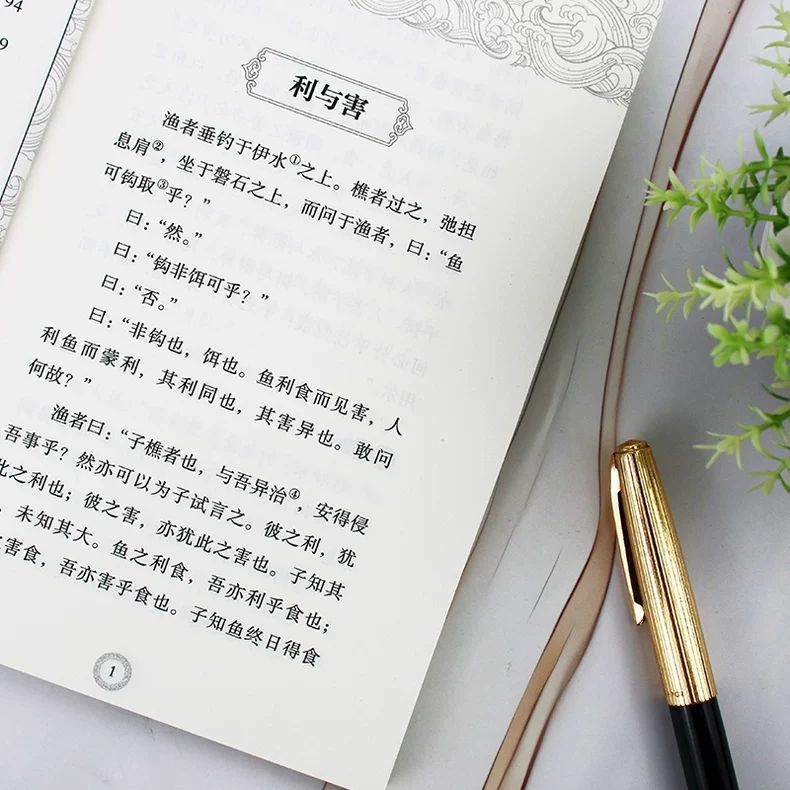 94
9
利与害
渔者垂钓于伊水①之上。樵者过之，弛担
息肩②，坐于磐石之上，而问于渔者，曰：“鱼
可钩取③乎？”
曰：“然。”
曰：“钩非饵可乎？”
曰：“否。”
曰：“非钩也，饵也。鱼利食而见害，人
利鱼而蒙利，其利同也，其害异也。敢问
何故？”
渔者曰：“子樵者也，与吾异治④，安得侵
吾事乎？然亦可以为子试言之。彼之利，犹
此之利也；彼之害，亦犹此之害也。子知其
，未知其大。鱼之利食，吾亦利乎食也；
害食，吾亦害乎食也。子知鱼终日得食
1